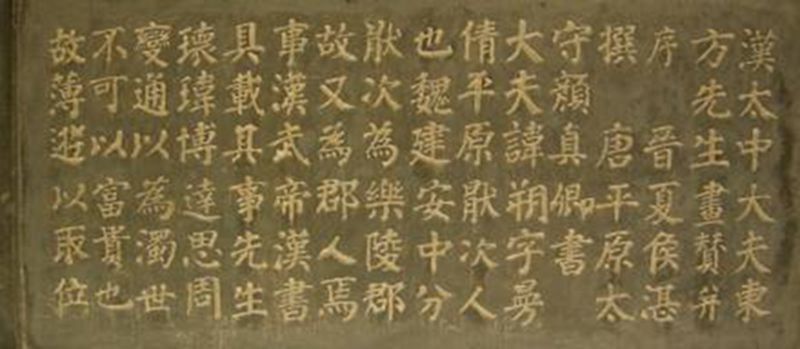 漢太中大夫東
方先生畫贊并
序 晉夏侯湛
撰 唐平原太
守顏真卿書
大夫諱朔字曼
倩平原猒次人
也魏建安中分
猒次為樂陵郡
故又為郡人焉
事漢武帝漢書
具載其事先生
瓌瑋博達思周
變通以為濁世
不可以富貴也
故薄遊以取位